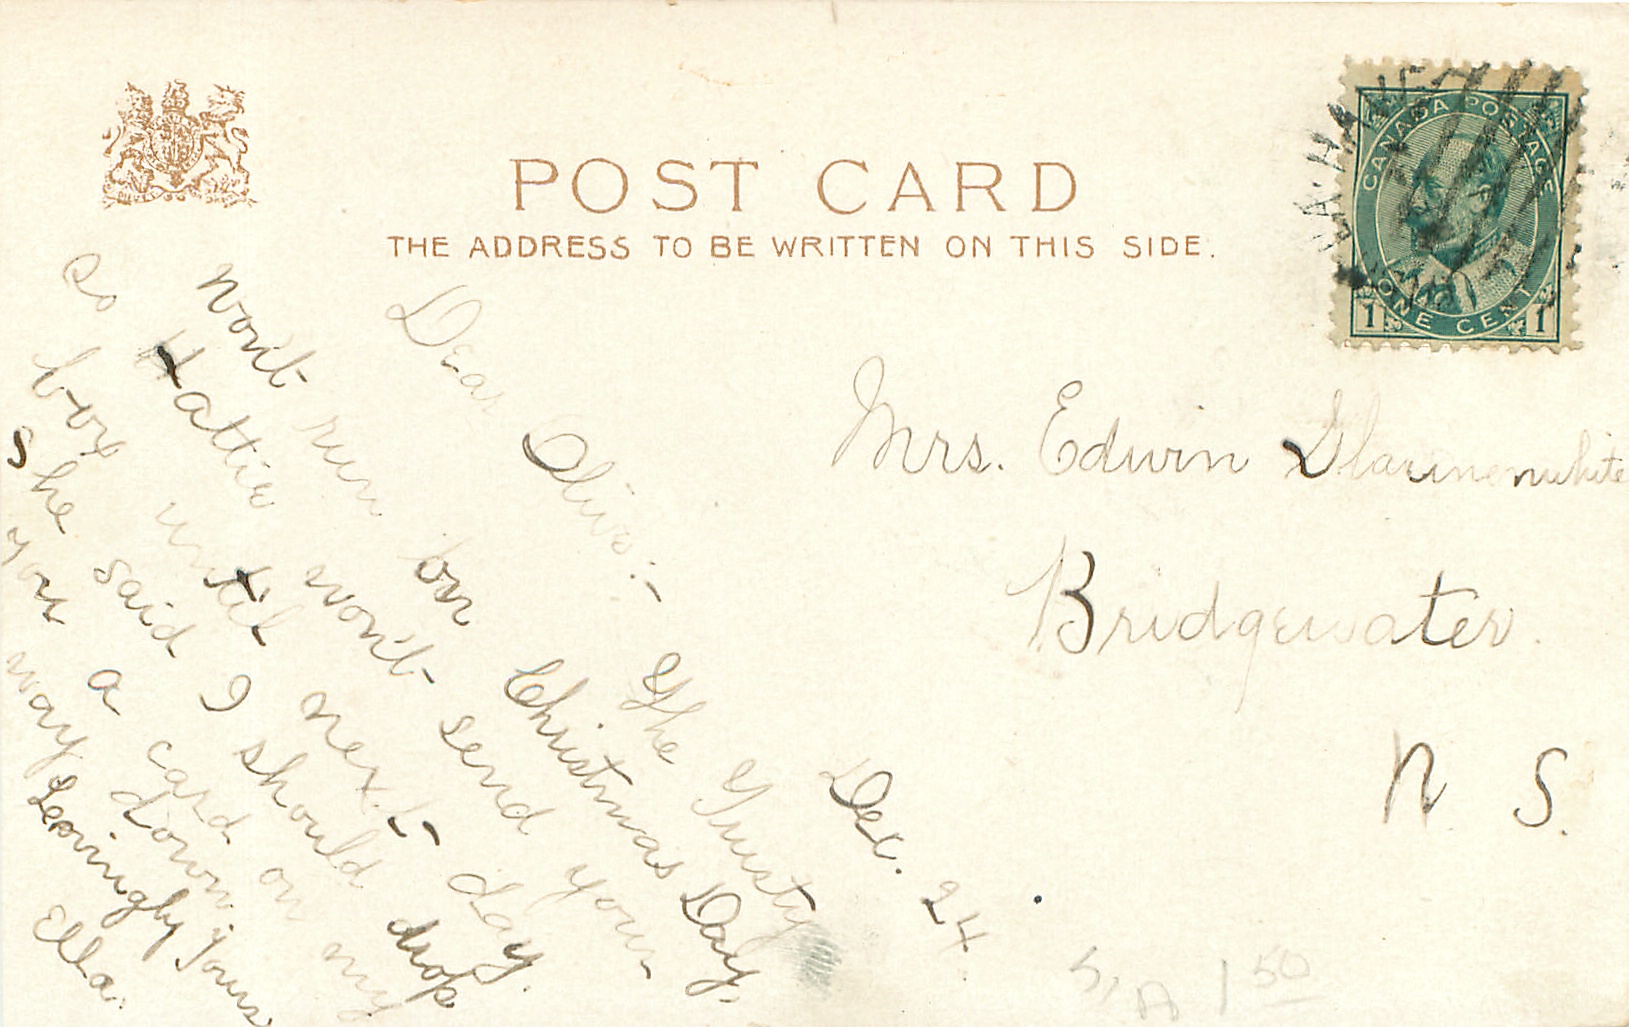 POST CARD
THE ADDRESS TO BE WRITTEN ON THIS SIDE.
CANADA POSTAGE
ONE CENT
1 1
LA HAVE
Mrs. Edwin
Bridgewater.
N. S.
Dec. 24
Dear Olive:-
The Trusty
won't run on Christmas Day,
so Hattie won't send your
box until next day.
She said I should drop
you a card on my
way down,
Lovingly yours
Ella.
1 50